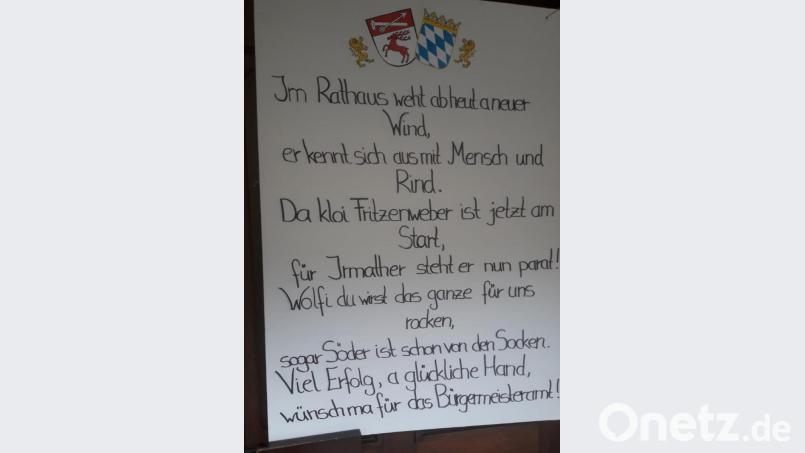 Im Rathaus weht ab heut a neuer
Wind,
er kennt sich aus mit Mensch und
Rind.
Da kloi Fritzenweber ist jetzt am
Start,
für Irmather steht er nun parat!
Wolfi du wirst das ganze für uns
rocken,
sogar Söder ist schon von den Socken.
Viel Erfolg, a glückliche Hand,
wünsch ma für das Bürgermeisteramt!
Onetz.de